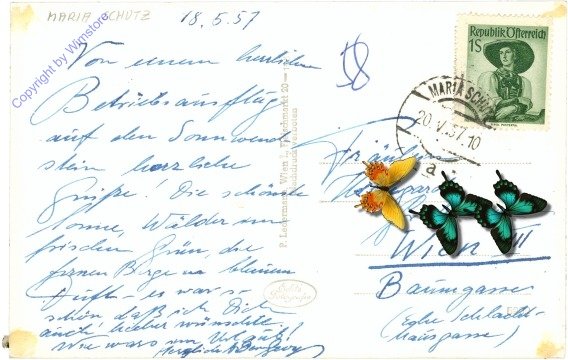 MARIA SCHUTZ
18.5.57
Copyright by Wimstore
Von einem herrlichen
Betriebsausflug
auf den Sonnwend
stein herzliche
Grüße! Die schönste
Sonne, Wälder im
frischen Grün, die
fernen Berge im blauen
Duft - es war so
schön daß ich Dich
auch lieber wünschte.
Wie wars im Urlaub?
Herzlichst
P. Ledermann, Wien
Republik Österreich
1S
MARIA SCHUTZ
20.V.57.10
a
Fräulein
Wien III
Baumgasse
(Ecke Schlacht-
hausgasse)